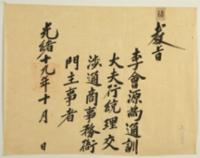 敎旨
李會源為通訓
大夫行統理交
涉通商事務衙
門主事者
光緒十九年十月　日